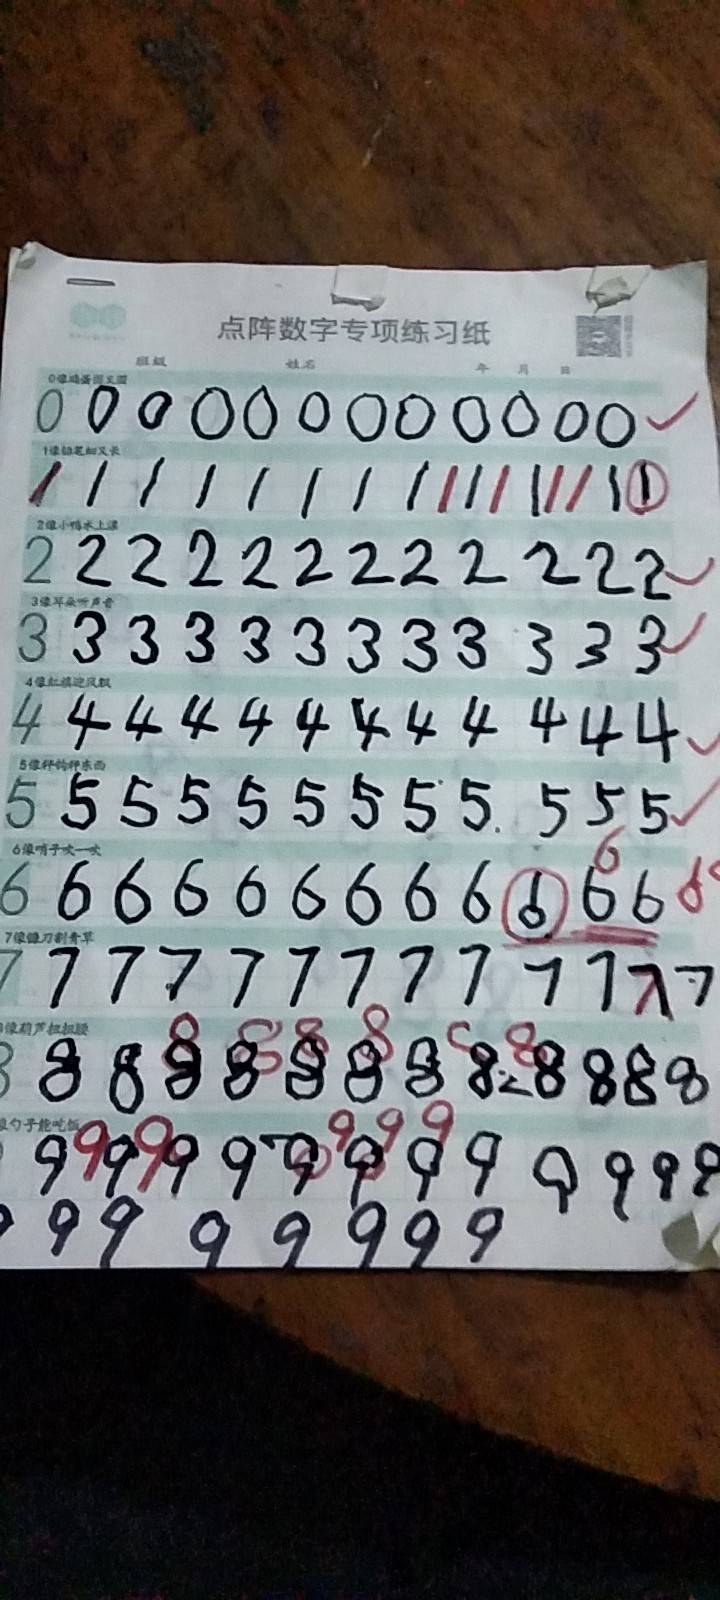 点阵数字专项练习纸
班级 姓名 年 月 日
0像鸡蛋圆又圆
0 0 0 0 0 0 0 0 0 0 0 0
1像铅笔细又长
1 1 1 1 1 1 1 1 1 1 1 1 1 1 1 1
2像小鸭水上漂
2 2 2 2 2 2 2 2 2 2 2 2
3像耳朵听声音
3 3 3 3 3 3 3 3 3 3 3 3
4像红旗迎风飘
4 4 4 4 4 4 4 4 4 4 4 4
5像秤钩秤东西
5 5 5 5 5 5 5 5 5 5 5 5
6像哨子吹一吹
6
6 6 6 6 6 6 6 6 6 6 6 6 6
7像镰刀割青草
7 7 7 7 7 7 7 7 7 7 7 7 7
像葫芦扭扭腰
8 8 8 8 8
8 8 8 8 8 8 8 8 8 8 8 8
像勺子能吃饭
9 9 9
9 9 9 9 9 9 9 9 9 9 9 9 9 9
9 9 9 9 9 9 9 9